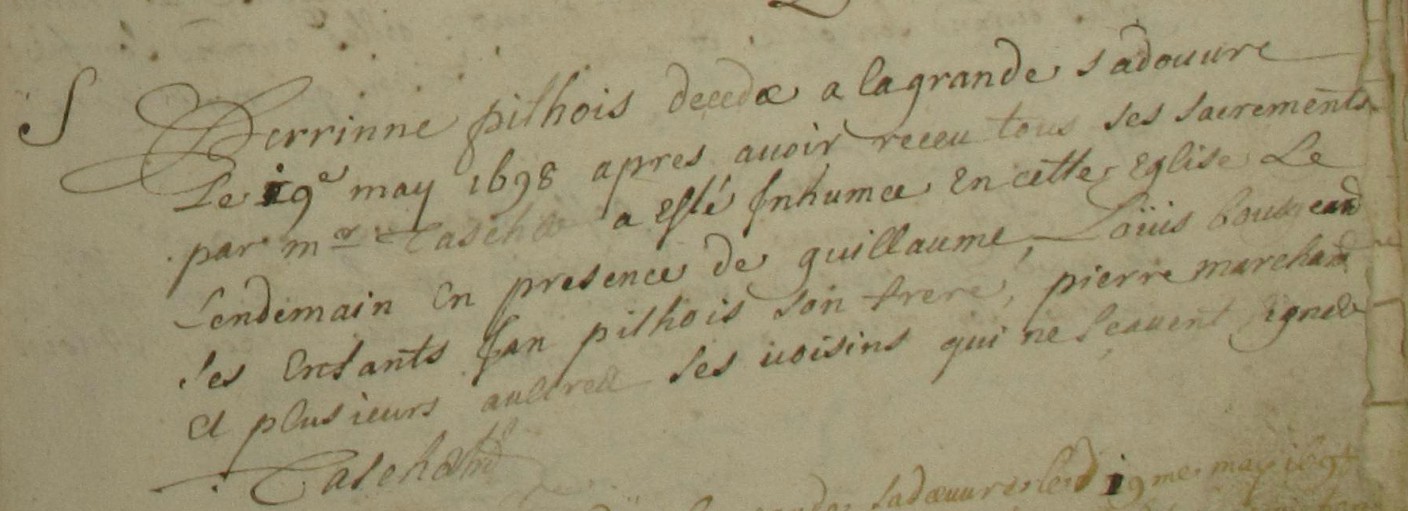 S Perrinne pithois decedee a la grande sadouure
Le 19e may 1698 apres auoir receu tous ses sacrements
par mr Taschee a esté Inhumee En cette Eglise Le
Lendemain En presence de guillaume, Loüis
ses Enfants Jan pithois son frere, pierre marchand
et plusieurs aultres ses uoisins qui ne scauent signer
sadoeuure le 19me may